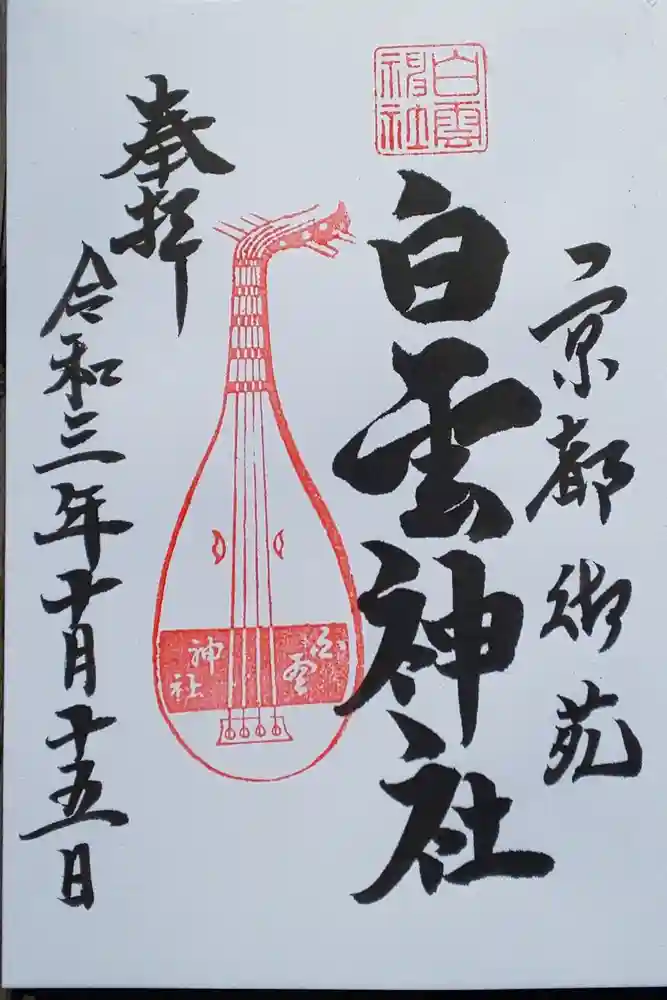 京都御苑
白雲神社
白雲神社
白雲神社
奉拝
令和三年十月十五日